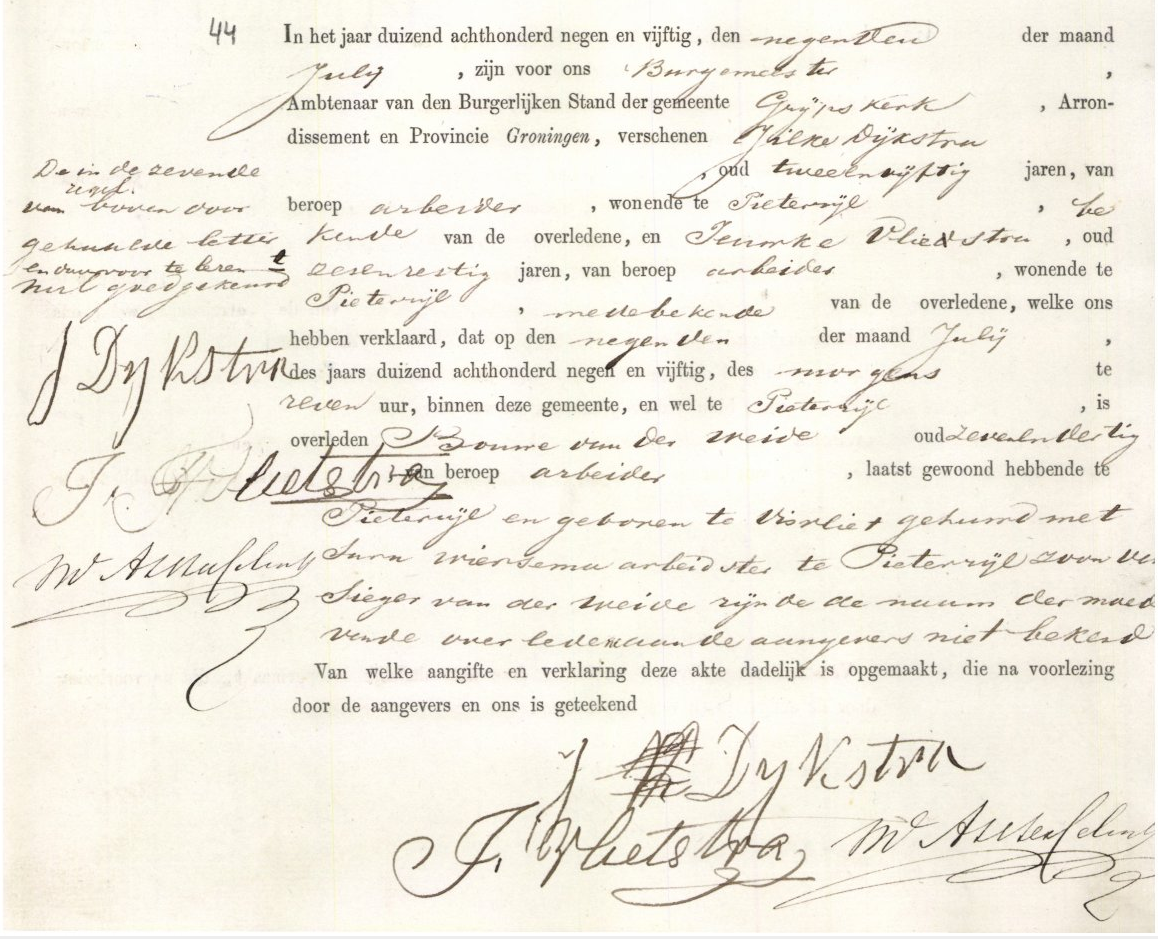 44
In het jaar duizend achthonderd negen en vijftig, den negenden der maand
July , zijn voor ons Burgemeester ,
Ambtenaar van den Burgerlijken Stand der gemeente Grijpskerk , Arron-
dissement en Provincie Groningen, verschenen Jilke Dijkstra
, oud tweeenvijftig jaren, van
beroep arbeider , wonende te Pieterzijl , be
kende van de overledene, en Vliedstra , oud
zesenzestig jaren, van beroep arbeider , wonende te
Pieterzijl , medebekende van de overledene, welke ons
hebben verklaard, dat op den negenden der maand July ,
des jaars duizend achthonderd negen en vijftig, des morgens te
zeven uur, binnen deze gemeente, en wel te Pieterzijl , is
overleden Bouwe van der Weide oud zevenendertig
van beroep arbeider , laatst gewoond hebbende te
Pieterzijl en geboren te Visvliet gehuwd met
Wiersema arbeidster te Pieterzijl zoon
Sieger van der Weide zijnde de naam der moed
overledene aan de aangevers niet bekend
Van welke aangifte en verklaring deze akte dadelijk is opgemaakt, die na voorlezing
door de aangevers en ons is geteekend
De in de zevende
regel
van boven door
gehaalde letter t
en daarvoor te lezen
goedgekeurd
J Dykstra
J. Vlietstra
J Dykstra
J. Vlietstra